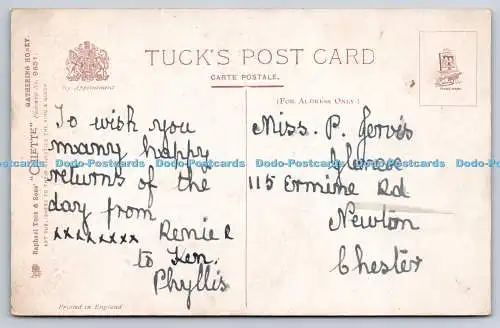 TUCK'S POST CARD
CARTE POSTALE.
By Appointment
(FOR ADDRESS ONLY.)
TRADE MARK
Raphael Tuck & Sons' "OILETTE"
GATHERING HONEY.
To wish you
many happy
returns of the
day from
xxxxxxxx Renie &
to Ken.
Phyllis
Miss. P. Jervis
115 Ermine Rd
Newton
Chester
Printed in England
Dodo-Postcards Dodo-Postcards Dodo-Postcards Dodo-Postcards Dodo-Postcards